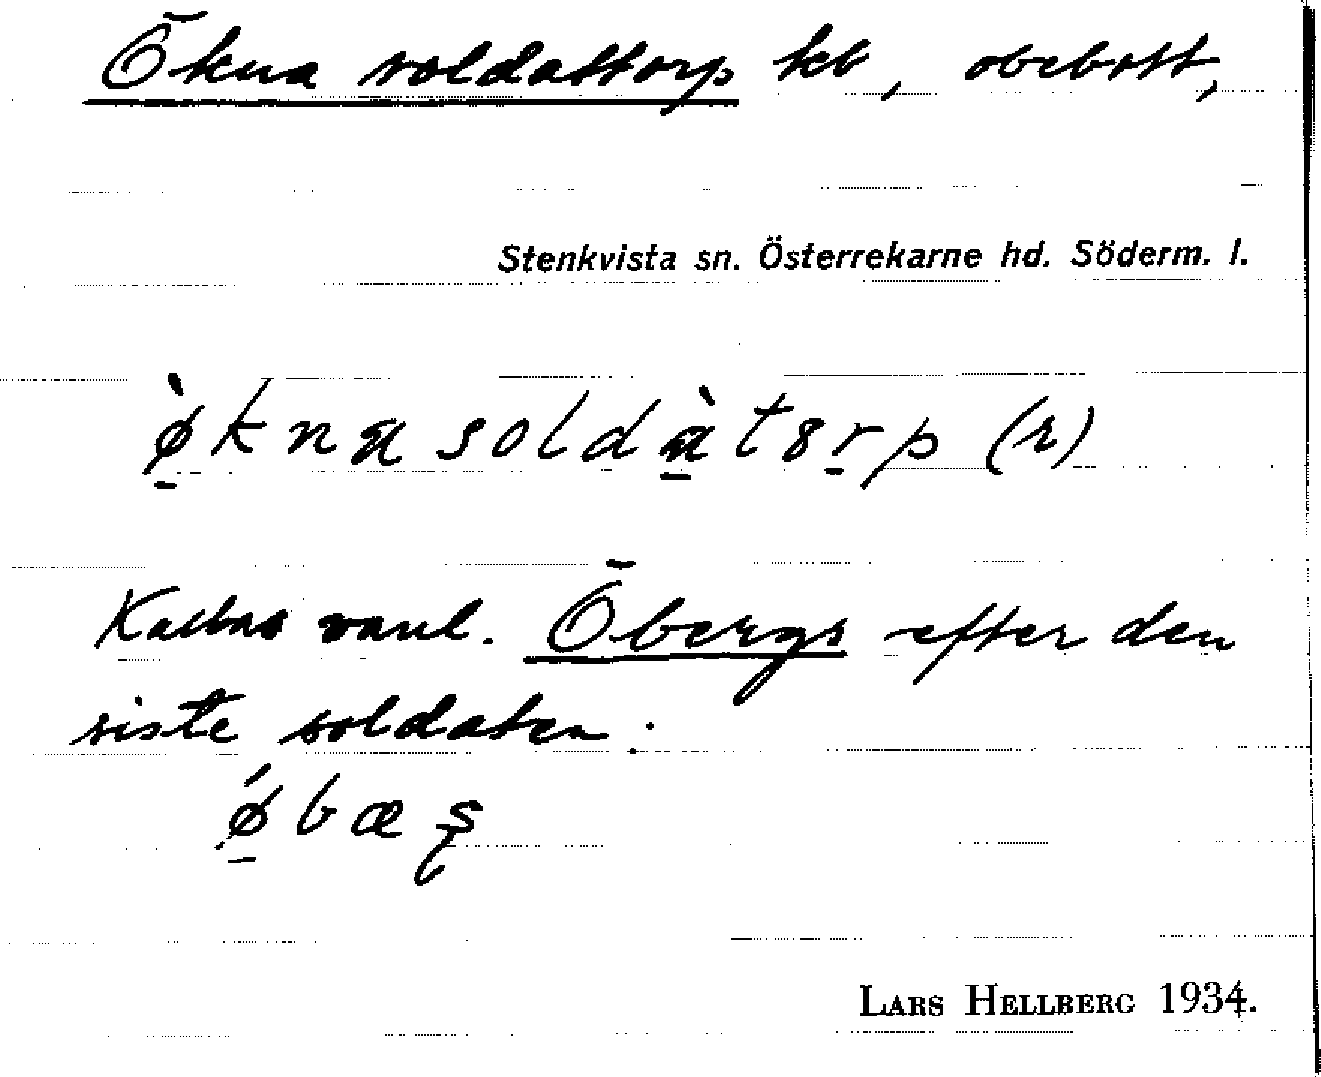 Ökna soldattorp kb, obebott,
Stenkvista sn. Österrekarne hd. Söderm. l.
ø̠̀knasoldà̠t8r̠p (r)
Kallas vanl. Öbergs efter den
siste soldaten.
ǿ̠bæş
LARS HELLBERG 1934.